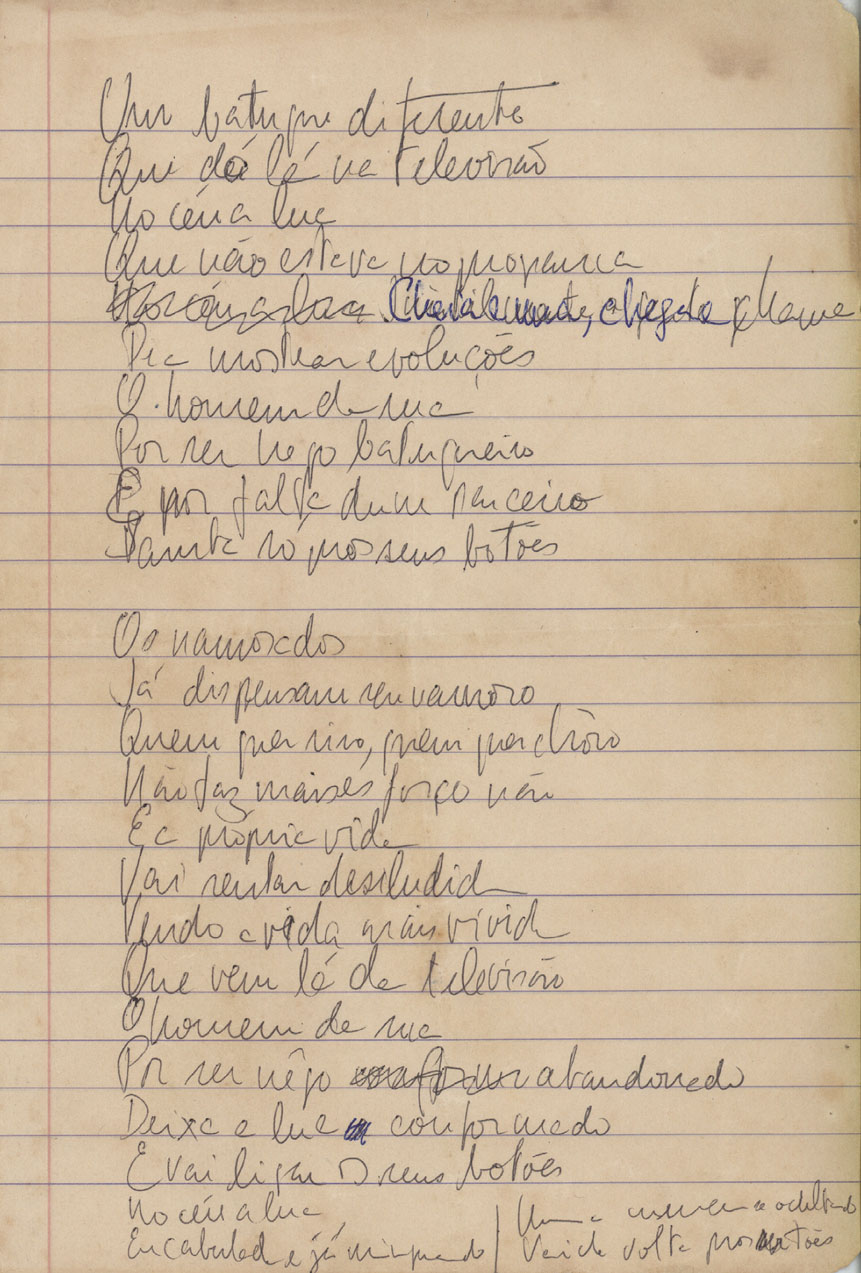 Um batuque diferente
Que dá lá na televisão
No céu a lua
Que não estava no programa
chegada
Pra mostrar evoluções
O homem da rua
Por ser nego batuqueiro
E por falta dum parceiro
Samba só pros seus botões
Os namorados
Já dispensam seu namoro
Quem quer riso, quem quer chôro
Não faz mais esforço não
E a própria vida
Vai sentar desiludida
Vendo a vida mais vivida
Que vem lá da televisão
O homem da rua
Por ser nêgo abandonado
Deixa a lua conformado
E vai ligar os seus botões
No céu a lua
Encabulada e já minguando
Vai de volta pros